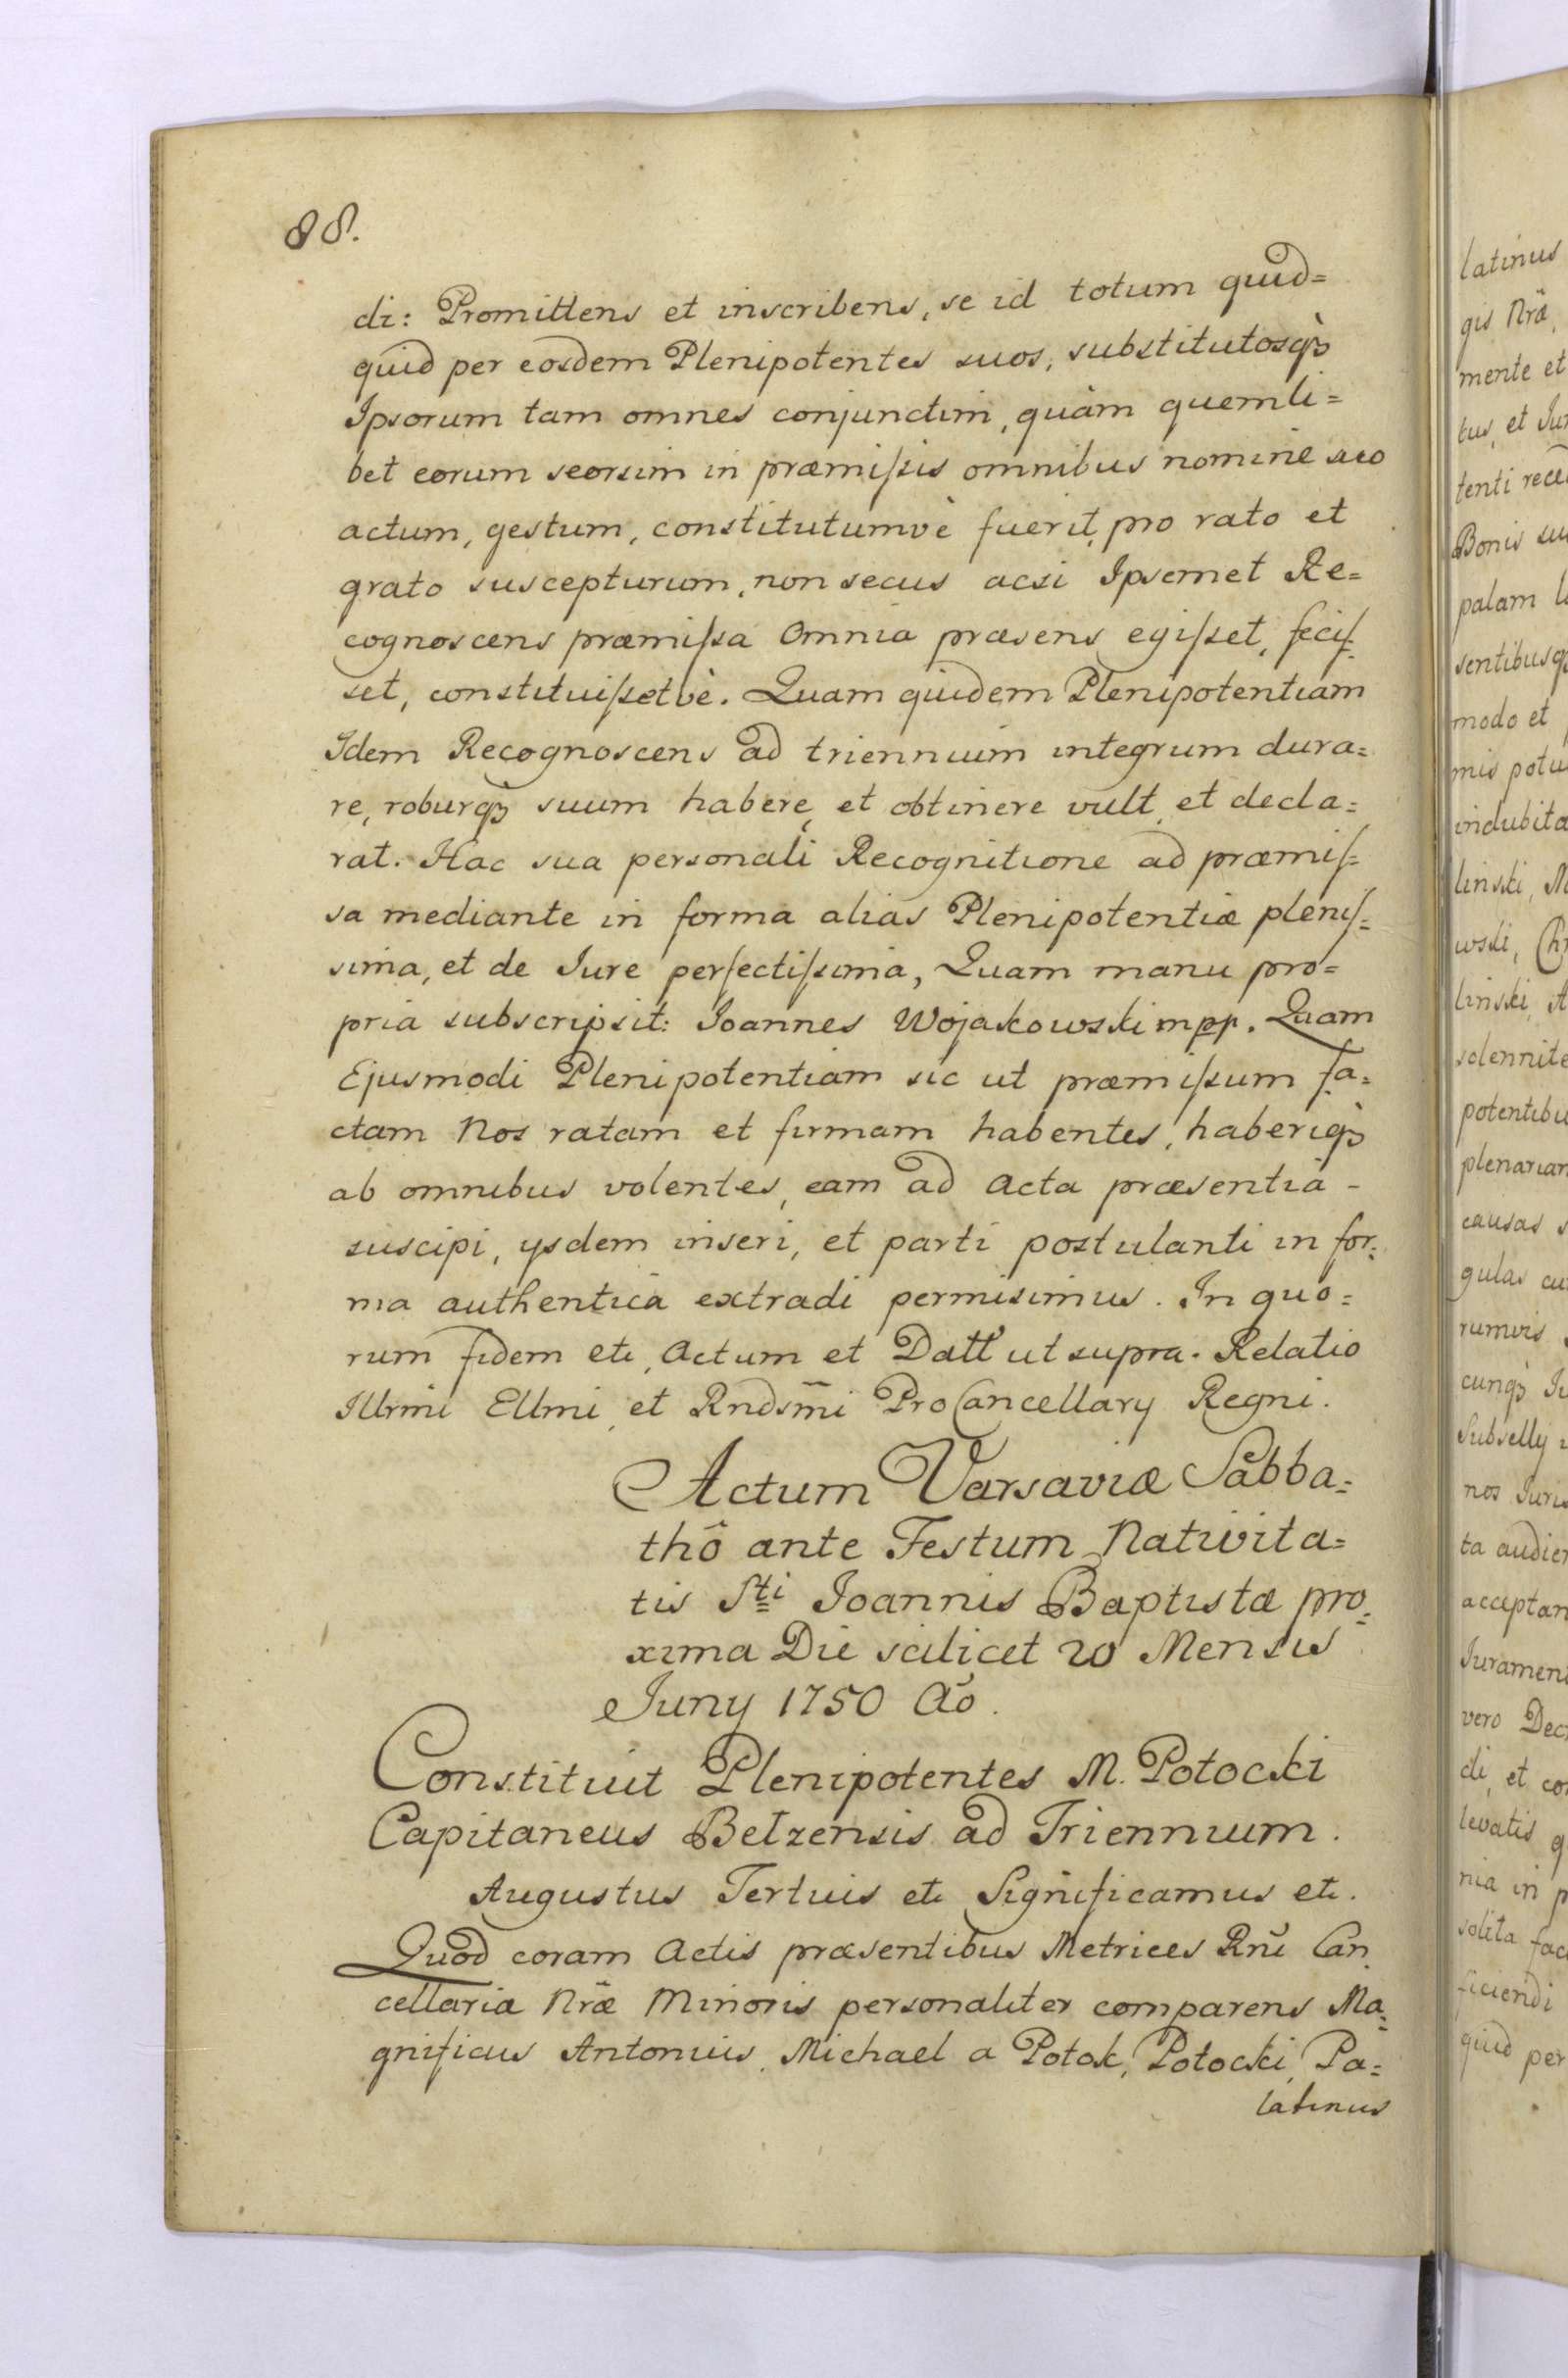 88.
di: Promittens et inscribens, se id totum quid=
quid per eosdem Plenipotentes suos, substitutosq́
Ipsorum tam omnes conjunctim, quàm quemli=
bet eorum seorsim in præmiſsis omnibus nomine suo
actum, gestum, constitutumvè fuerit, pro rato et
grato suscepturum, non secus acsi Ipsemet Re=
cognoscens præmiſsa Omnia præsens egiſset, feciſ=
set, constituiſsetvè. Quam quidem Plenipotentiam
Idem Recognoscens ad triennium integrum dura=
re, roburq́ suum habere, et obtinere vult, et decla=
rat. Hac sua personali Recognitione ad præmiſ=
sa mediante in forma alias Plenipotentiæ pleniſ=
sima, et de Jure perfectiſsima, Quam manu pro=
pria subscripsit: Joannes Wojakowski mpp. Quam
Ejusmodi Plenipotentiam sic ut præmiſsum fa=
ctam Nos ratam et firmam habentes, haberiq́
ab omnibus volentes, eam ad Acta præsentia -
suscipi, ysdem inseri, et parti postulanti in for=
ma authentica extradi permisimus. In quo=
rum fidem etc, Actum et Datt ut supra. Relatio
Illrmi Ellmi et Rndsm̃i ProCancellary Regni.
Actum Varsaviæ Sabba=
thô ante Festum Nativita=
tis Sti Joannis Baptistæ pro=
xima Die scilicet 20 Mensis
Juny 1750 Ao.
Constituit Plenipotentes M. Potocki
Capitaneus Belzensis ad Triennium.
Augustus Tertius etc Significamus etc.
Quod coram Actis præsentibus Metrices Rñi Can
cellaria Nrãe Minoris personaliter comparens Ma=
gnificus Antonius Michael a Potok, Potocki, Pa=
latinus
latinus
gis Nrãe,
mente et
tus, et Jur
tenti rece
Bonis su
palam l
sentibusq́
modo et
mis potu
indubita
linski, M
wski, Ch
linski, A
solennite
potentibu
plenariam
causas s
gulas cu
rumvis
cunq́ Ju
Subselly
nos Juris
ta audien
acceptan
Jurament
vero Dec
di, et co
levatis q
nia in p
solita fac
ficiendi
quid per